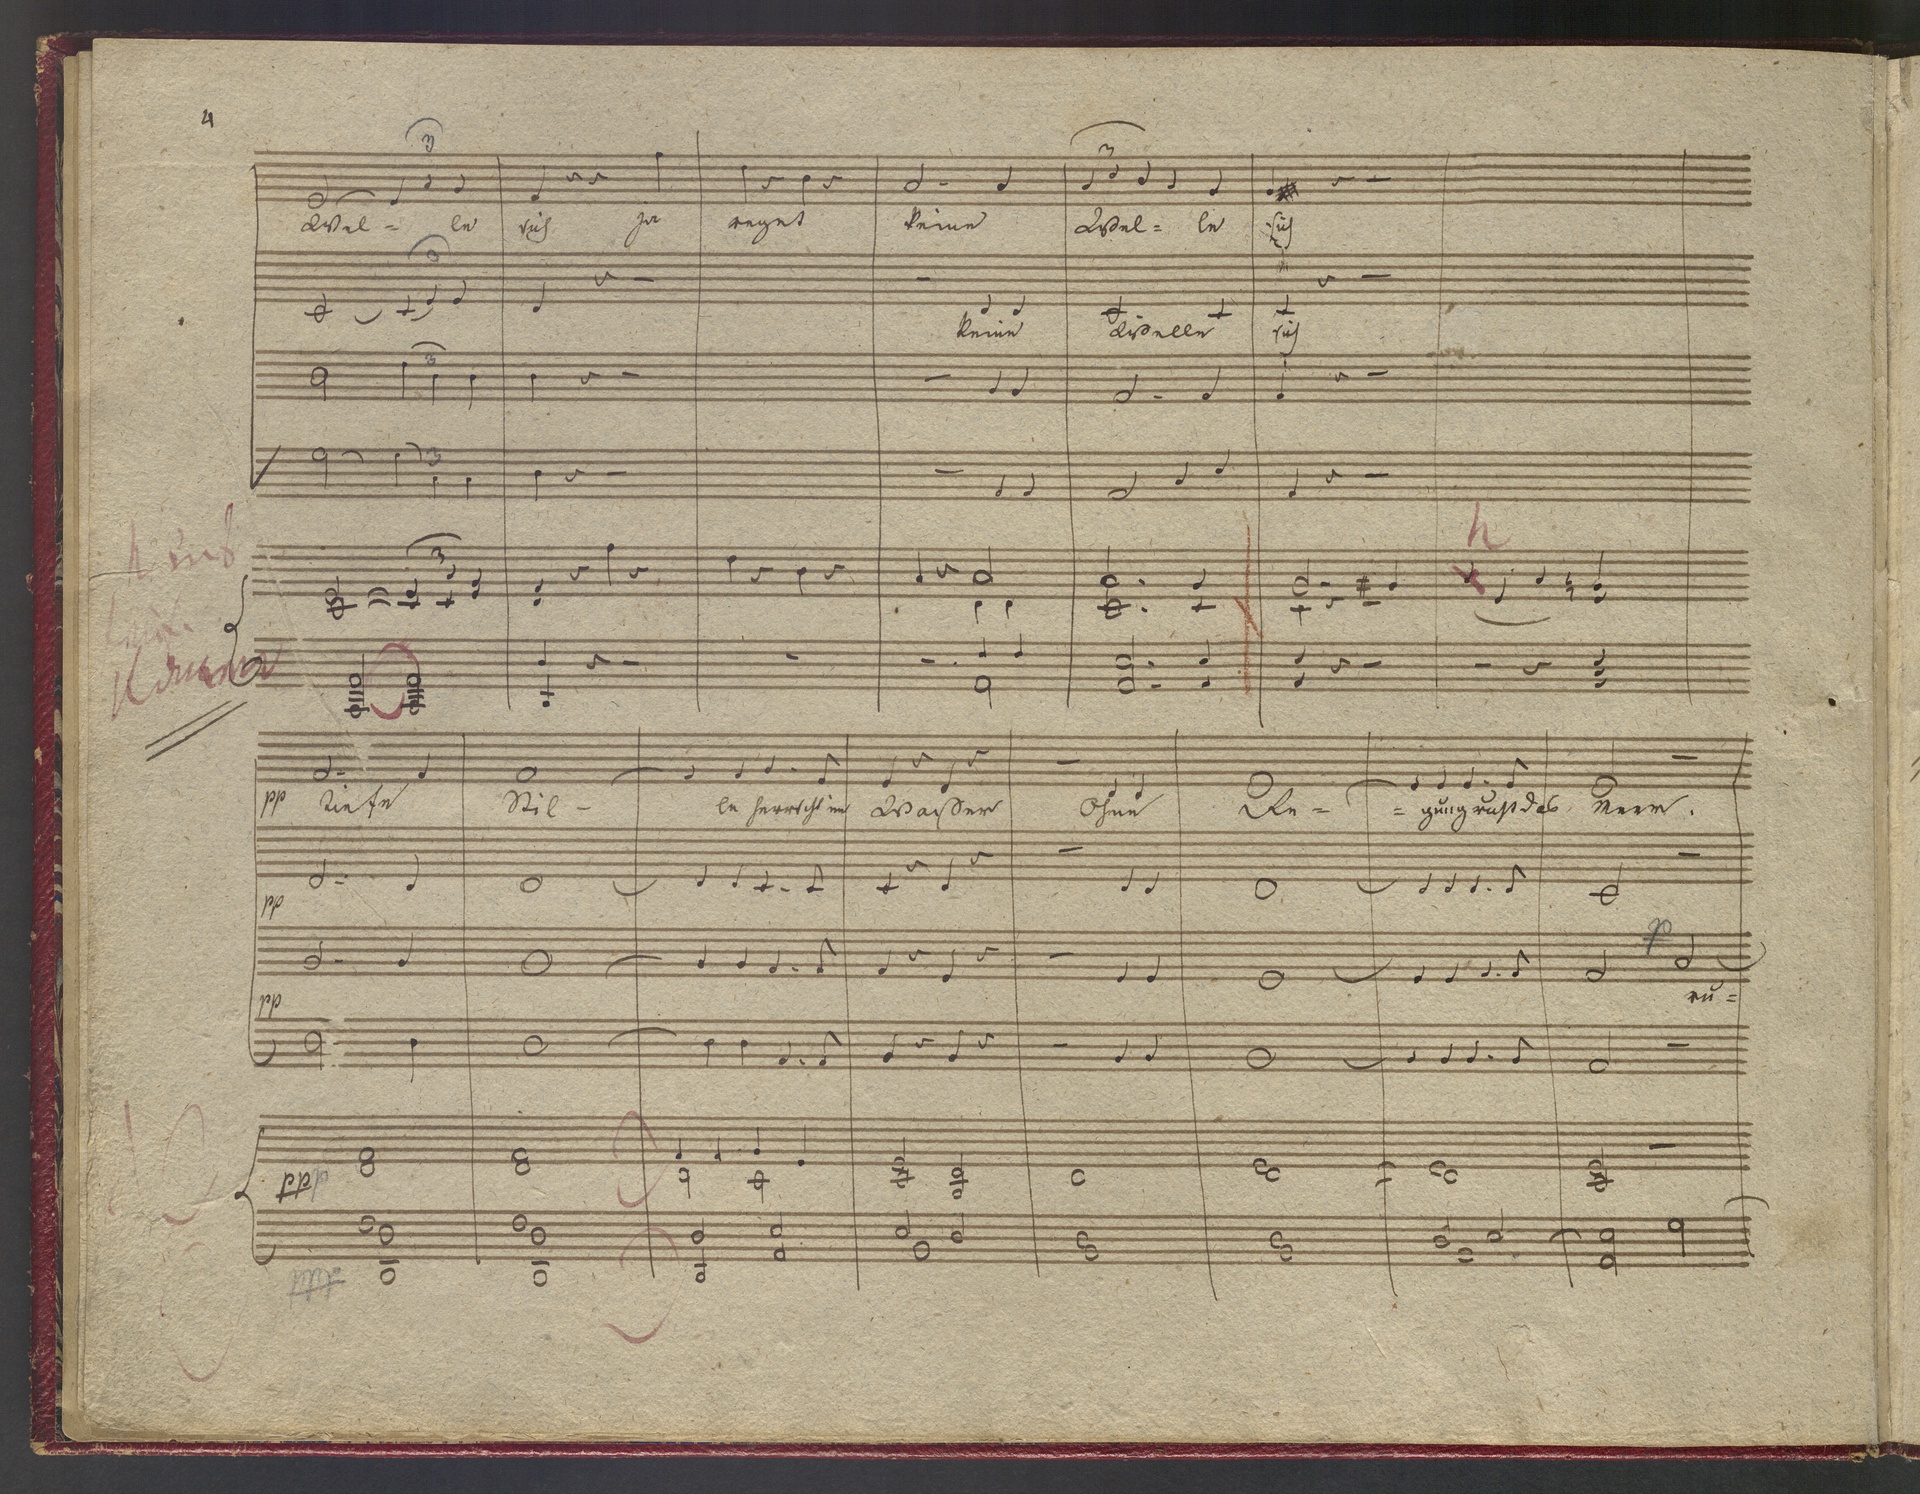 4
3
Wel- le sich ja reget keine Wel= le sich
3
keine Welle sich
3
3
3
h
pp Tiefe Stil- le herrscht im Wasser Ohne Re- =gung ruht das Meer.
pp
p
pp
ru=